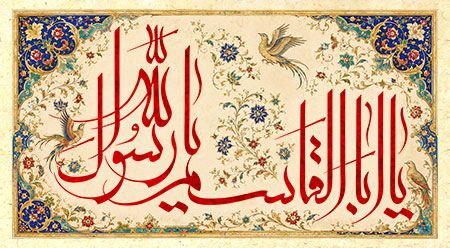 یا اباالقاسم یا رسول الله